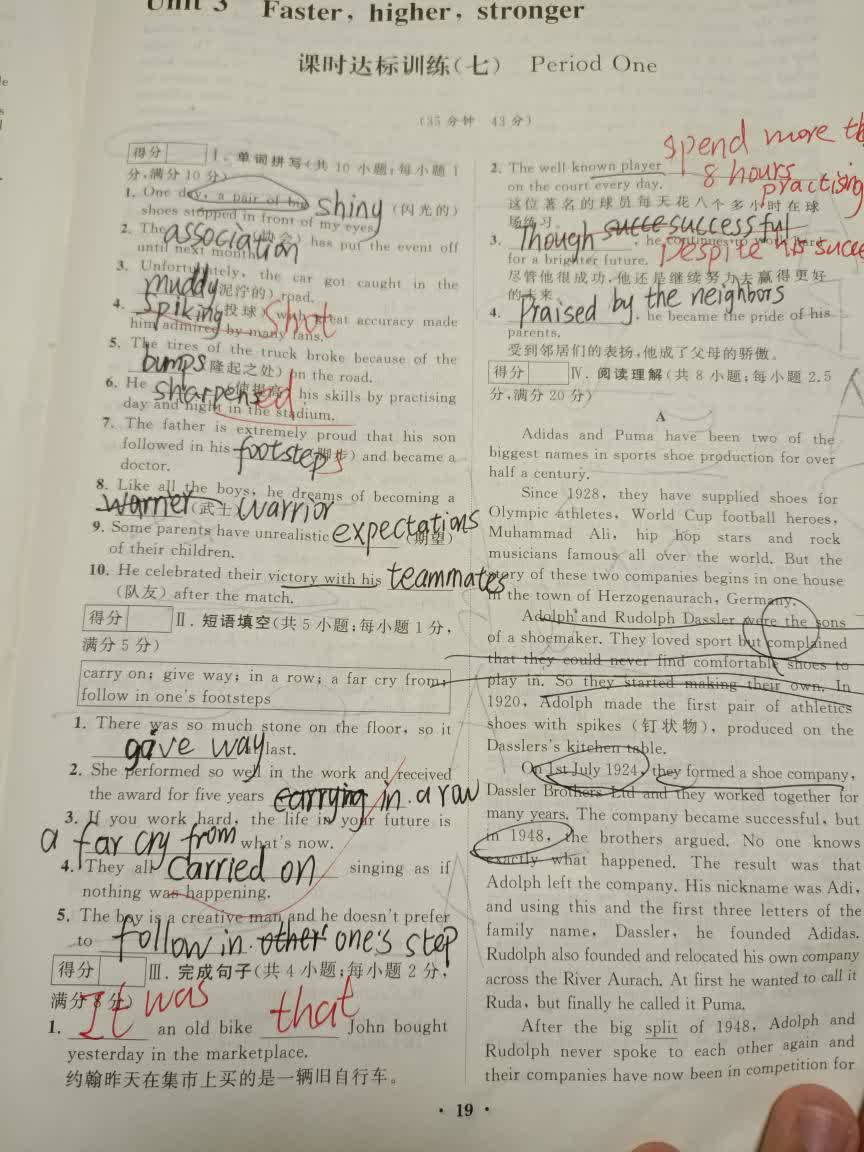 Unit 3 Faster, higher, stronger
课时达标训练(七) Period One
(35分钟 43分)
得分 Ⅰ. 单词拼写(共10小题;每小题1
分,满分10分)
1. One day, a pair of big shiny (闪光的)
shoes stopped in front of my eyes.
2. The association (协会) has put the event off
until next month.
3. Unfortunately, the car got caught in the
muddy (泥泞的) road.
4. Spiking (投球) with great accuracy made Shot
him admired by many fans.
5. The tires of the truck broke because of the
bumps (隆起之处) on the road.
6. He sharpensed (使提高) his skills by practising
day and night in the stadium.
7. The father is extremely proud that his son
followed in his footsteps (脚步) and became a
doctor.
8. Like all the boys, he dreams of becoming a
warrier (武士) warrior
9. Some parents have unrealistic expectations (期望)
of their children.
10. He celebrated their victory with his teammates
(队友) after the match.
得分 Ⅱ. 短语填空(共5小题;每小题1分,
满分5分)
carry on; give way; in a row; a far cry from;
follow in one's footsteps
1. There was so much stone on the floor, so it
gave way last.
2. She performed so well in the work and received
the award for five years carrying in a row
3. If you work hard, the life in your future is
a far cry from what's now.
4. They all Carried on singing as if
nothing was happening.
5. The boy is a creative man and he doesn't prefer
to follow in other one's step
得分 Ⅲ. 完成句子(共4小题;每小题2分,
满分8分)
1. It was an old bike that John bought
yesterday in the marketplace.
约翰昨天在集市上买的是一辆旧自行车。
2. The well-known player spend more
8 hours practising
on the court every day.
这位著名的球员每天花八个多小时在球
场练习。
3. Though succe successful, he continues to work hard
Despite his succe
for a brighter future.
尽管他很成功,他还是继续努力去赢得更好
的未来。
4. Praised by the neighbors, he became the pride of his
parents.
受到邻居们的表扬,他成了父母的骄傲。
得分 Ⅳ. 阅读理解(共8小题;每小题2.5
分,满分20分)
A
Adidas and Puma have been two of the
biggest names in sports shoe production for over
half a century.
Since 1928, they have supplied shoes for
Olympic athletes, World Cup football heroes,
Muhammad Ali, hip hop stars and rock
musicians famous all over the world. But the
story of these two companies begins in one house
in the town of Herzogenaurach, Germany.
Adolph and Rudolph Dassler were the sons
of a shoemaker. They loved sport but complained
that they could never find comfortable shoes to
play in. So they started making their own. In
1920, Adolph made the first pair of athletics
shoes with spikes (钉状物), produced on the
Dasslers's kitchen table.
On 1st July 1924, they formed a shoe company,
Dassler Brothers Ltd and they worked together for
many years. The company became successful, but
in 1948, the brothers argued. No one knows
exactly what happened. The result was that
Adolph left the company. His nickname was Adi,
and using this and the first three letters of the
family name, Dassler, he founded Adidas.
Rudolph also founded and relocated his own company
across the River Aurach. At first he wanted to call it
Ruda, but finally he called it Puma.
After the big split of 1948, Adolph and
Rudolph never spoke to each other again and
their companies have now been in competition for
· 19 ·